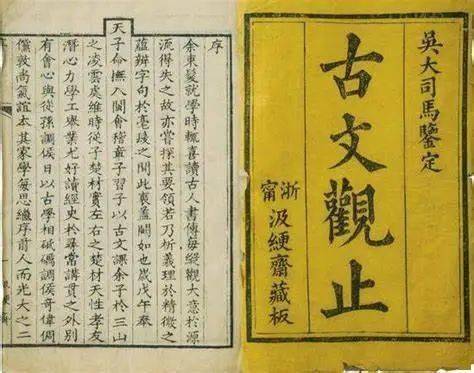 吳大司馬鑒定
古文觀止
浙甯
汲綆齋藏板
序
余束髮就學時輒喜讀古人書傳每縱觀大意於源
流得失之故亦嘗探其要領若乃析義理於精微之
蘊辨字句於毫髮之間此衷蓋闕如也歲戊午奉
天子命撫八閩會稽章子習子以古文課余子於三山
之凌雲處維時從子楚材實左右之楚材天性孝友
潛心力學工舉業尤好讀經史於尋常講貫之外別
有會心與從孫調侯日以古學相砥礪調侯奇偉倜
儻敦尚氣誼本其家學每思繼序前人而光大之二